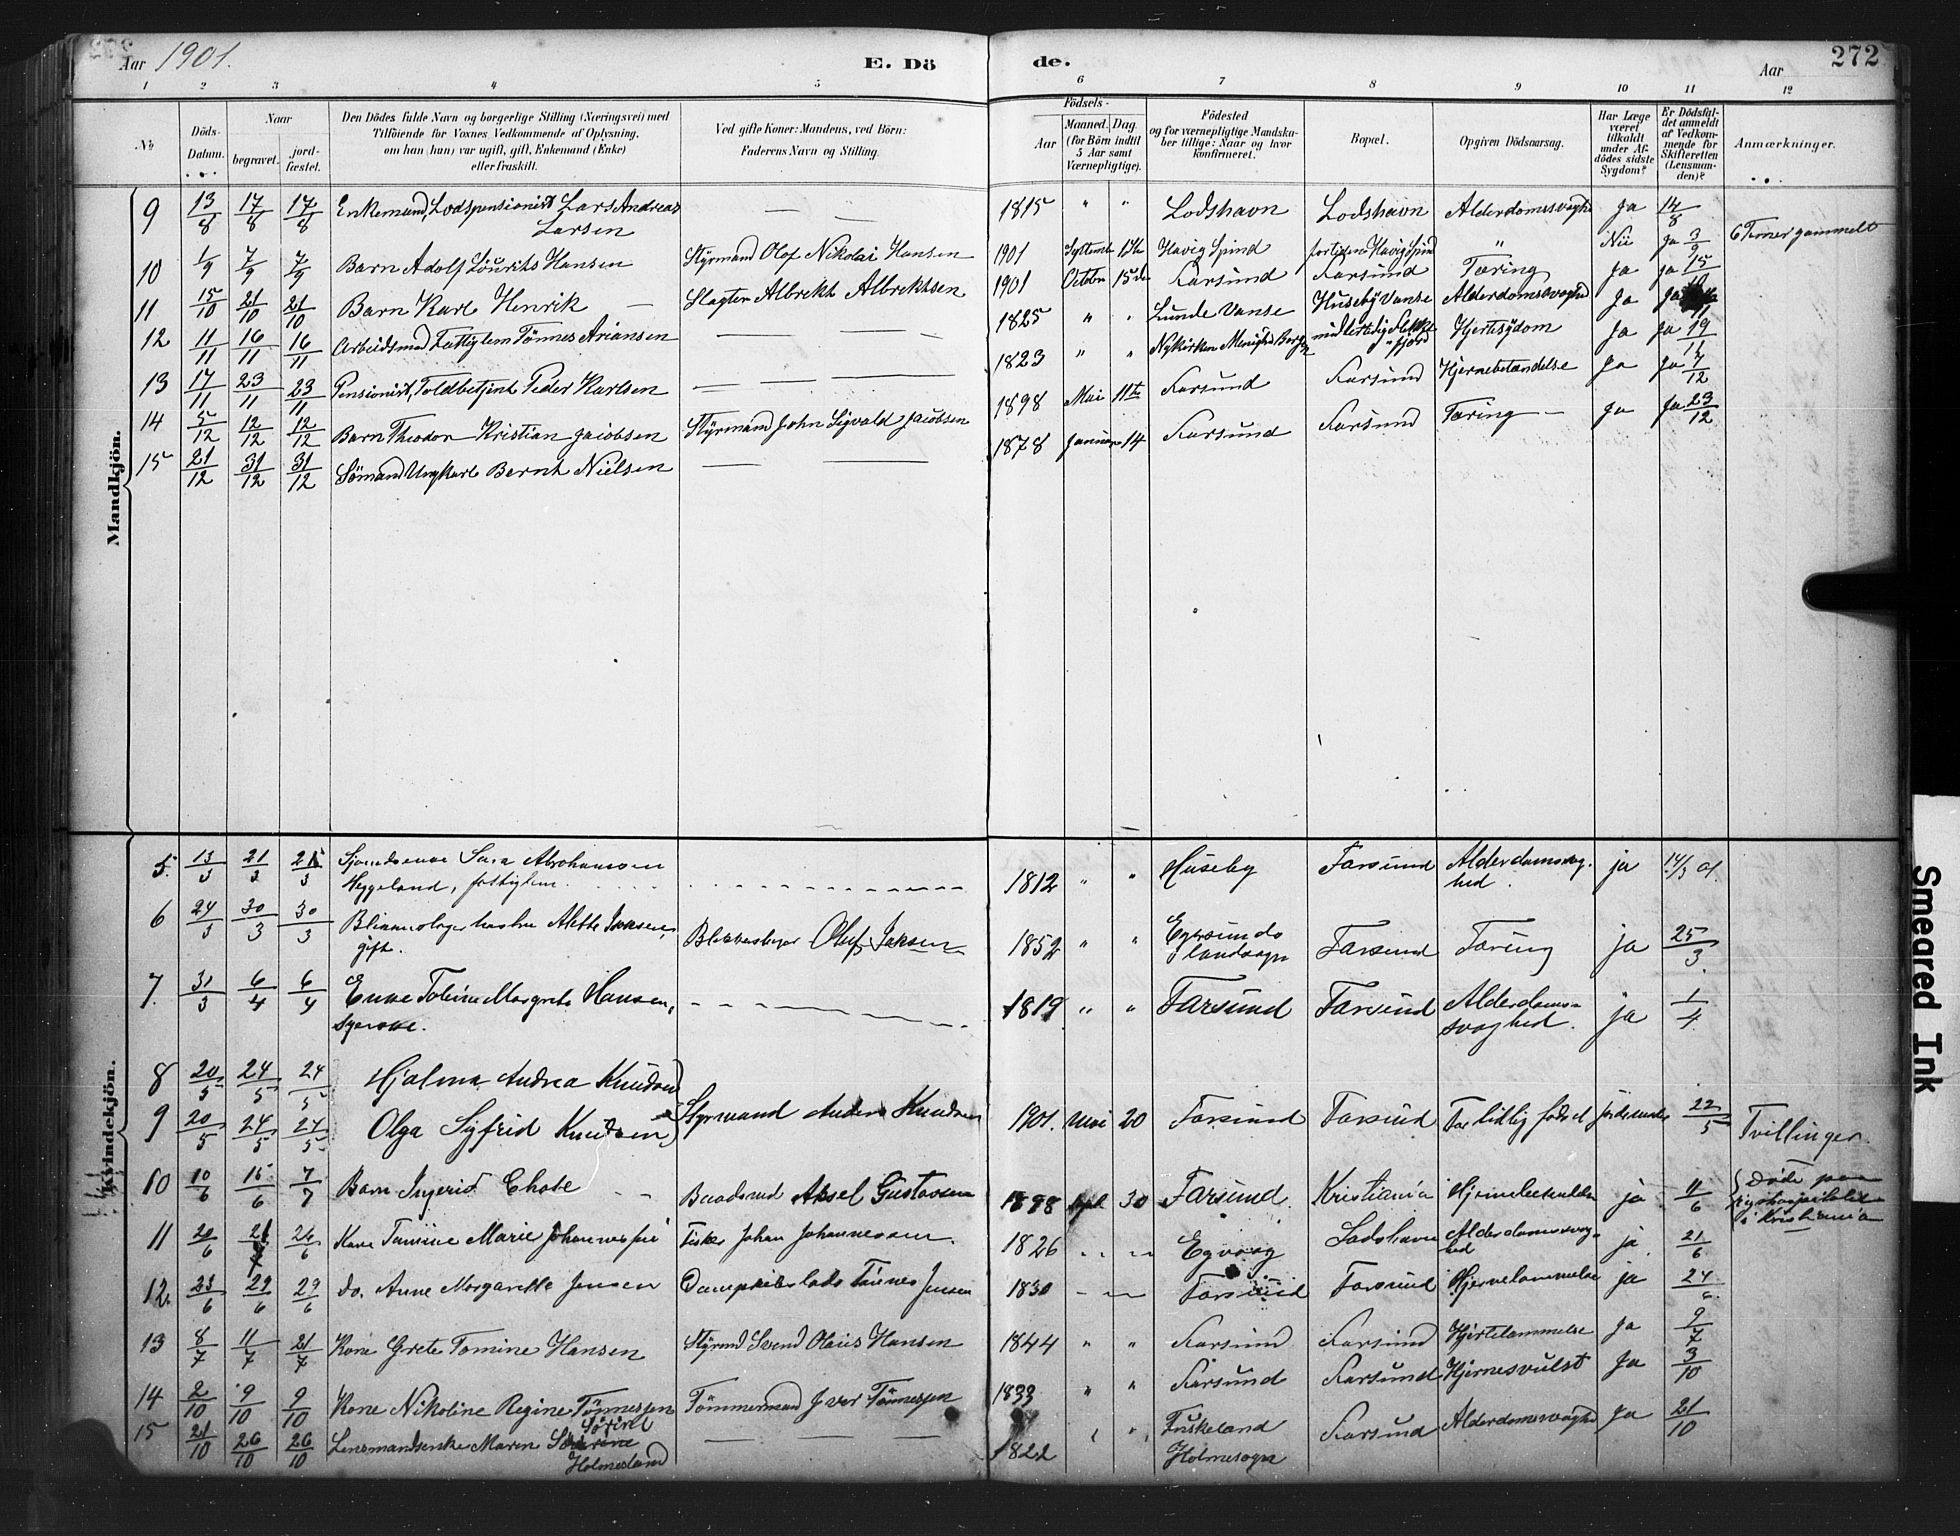 Aar 1901.
E. Dö
de.
Aar
272
1 2 3 4 5 6 7 8 9 10 11 12
No
Döds-Datum.
Naar
begravet.
jord-fæstet.
Den Dödes fulde Navn og borgerlige Stilling (Næringsvei) med
Tilföiende for Voxnes Vedkommende af Oplysning,
om han (hun) var ugift, gift, Enkemand (Enke)
eller fraskilt.
Ved gifte Koner: Mandens, ved Börn:
Faderens Navn og Stilling.
Födsels-
Aar
Maaned. Dag.
(for Börn indtil
5 Aar samt
Værnepligtige).
Födested
og for værnepligtige Mandska-
ber tillige: Naar og hvor
konfirmeret.
Bopæl.
Opgiven Dödsaarsag.
Har Læge
været
tilkaldt
under Af-
dödes sidste
Sygdom?
Er Dödsfal-
det anmeldt
af Vedkom-
mende for
Skifteretten
(Lensman-
den)?
Anmærkninger.
Mandkjön.
9 13/8 17/8 17/8 Enkemand, Lodspensionist Lars Andreas Larsen — — 1815 " " Lodshavn Lodshavn Alderdomssvaghed Ja 14/8
10 1/9 7/9 7/9 Barn Adolf Lourits Hansen Styrmand Olof Nikolai Hansen 1901 Septembr Havig Spind Havig Spind " Nei Ja 3/9 6 Timer gammelt
11 15/10 21/10 21/10 Barn Karl Henrik — Slagter Albrekt Albrektsen 1901 October 15de Farsund Farsund Tæring Ja ja 15/10
12 11/11 16/11 16/11 Arbeidsmand Fattiglem Tönnes Ariansen — — 1825 " " Lunde Vanse Huseby Vanse Alderdomssvaghed Ja Ja
13 17/11 23/11 23/11 Pensionist, Toldbetjent Peder Karlsen — — 1823 " " Nykirken Menighed Bergen midlertidig Flekkefjord Hjertesydom Ja Ja 19/11
14 5/12 12/12 12/12 Barn Theodor Kristian Jacobsen Styrmand John Sigvald Jacobsen 1898 Mai 11te Farsund Farsund Hjernebetændelse Ja Ja 7/12
15 21/12 31/12 31/12 Sömand Ungkarl Bernt Nielsen — — 1878 Januar 14 Farsund Farsund Tæring — Ja Ja 23/12
Kvindekjön.
5. 13/3 21/3 21/3 Sara Abrahamsen
Heggeland, fattiglem 1812 " " Huseby Farsund Alderdomssvag-
hed. ja 14/3 01.
6 24/3 30/3 30/3 Alette Jensen,
gift. Oluf Jensen 1852 " " Egersunds
landsogn Farsund Tæring ja 25/3
7. 31/3 6/4 6/4 Enke Tobine Margrete Hansen, 1819 " " Farsund Farsund Alderdoms-
svaghed. ja 1/4
8 20/5 24/5 24/5 Hjalma Andrea Knudsen
9 20/5 24/5 24/5 Olga Sigfrid Knudsen Styrmand Anders Knudsen 1901. Mai 20 Farsund Farsund For tidlig födset jordemoder 22/5 Tvillinger.
10 10/6 15/6 7/7 Barn Ingerid Aksel Gustavsen 1898 April 30 Farsund Kristiania ja 11/6 Döde paa
i Kristiania
11 20/6 21 26/6 Kone Tomine Marie Fisker Johan Johannessen. 1826 " " Egvaag Lodshavn Alderdomssvag-
hed ja 21/6
12. 23/6 29/6 29/6 do. Anne Margarethe Jensen Tönnes Jensen 1830 " " Farsund Farsund Hjernelammelse ja 24/6
13 8/7 11/7 21/7 Kone Grete Tomine Hansen Styrmd Svend Olaus Hansen 1844 " " Farsund Farsund Hjertelammelse ja 9/7
14 2/10 9/10 9/10 Kone Nikoline Regine Tönnessen Tömmermand Ivar Tönnessen 1833 " " Farsund Farsund Hjernesvulst Ja 3/10
15 21/10 26/10 26/10 Lensmandsenke Maren Sörine
Holmesland — — 1822 " " Fuskeland
Holmesogn Farsund Alderdomssvaghed Ja 21/10
Smeared Ink